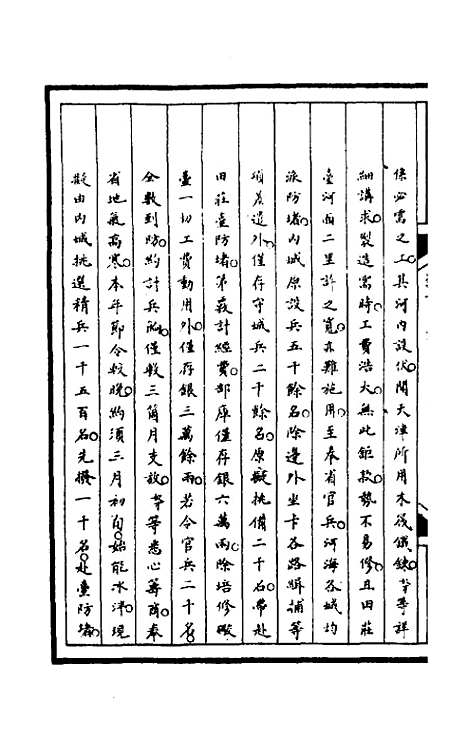 係必需之工其河內設伏聞天津所用木筏鐵鍊等項詳
細講求製造需時工費浩大無此鉅款勢不易修且田莊
臺河面二里許之寬亦難施用至奉省官兵河海各城均
派防堵內城原設兵五千餘名除邊外坐卡各路緝捕等
項差遣外僅存守城兵二千餘名原擬挑備二千名帶赴
田莊臺防堵第覈計經費部庫僅存銀六萬兩除培修礮
臺一切工費動用外僅存銀三萬餘兩若令官兵二千名
全數到防約計兵餉僅敷三箇月支放等等悉心籌商奉
省地氣高寒本年節令較晚約須三月初旬始能冰泮現
擬由內城挑選精兵一千五百名先撥一千名赴臺防堵